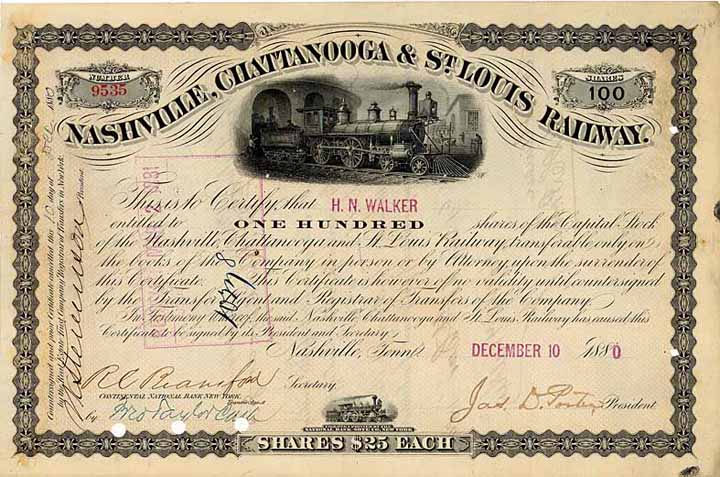 NUMBER
9535
SHARES
100
NASHVILLE, CHATTANOOGA & ST. LOUIS RAILWAY.
This is to Certify, that H. N. WALKER
entitled to ONE HUNDRED shares of the Capital Stock
of the Nashville, Chattanooga and St. Louis Railway, transferable only on
the books of the Company in person or by Attorney, upon the surrender of
this Certificate. This Certificate is however of no validity until countersigned
by the Transfer Agent and Registrar of Transfers of the Company.
In Testimony Whereof, the said Nashville, Chattanooga and St. Louis Railway has caused this
Certificate to be signed by its President and Secretary.
Nashville, Tenn. DECEMBER 10 1880
Secretary.
CONTINENTAL NATIONAL BANK NEW YORK.
by Geo Taylor Cash
Jas. D. Porter President
SHARES $25 EACH
Countersigned and prior Certificate cancelled this 10 day of Dec 1880
by the Real Estate Trust Company Registrar of Transfers in New York.
President.